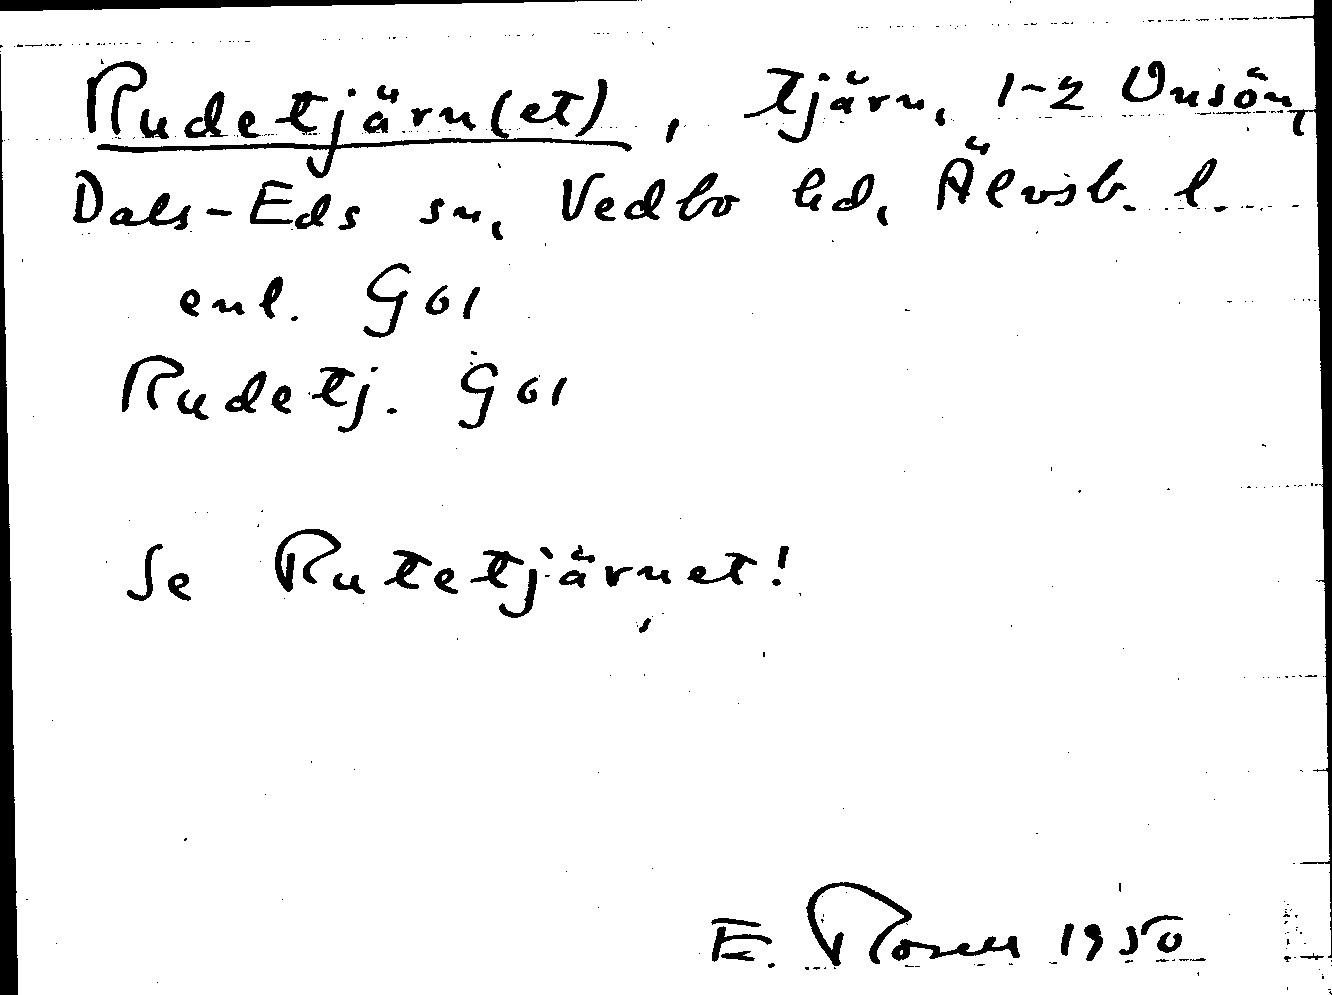 Rudetjärn(et), tjärn, 1-2 Onsön,
Dals-Eds sn, Vedbo hd, Älvsb. l.
enl. G01
Rudetj. G01
Se Rutetjärnet!
E. Rosell 1950